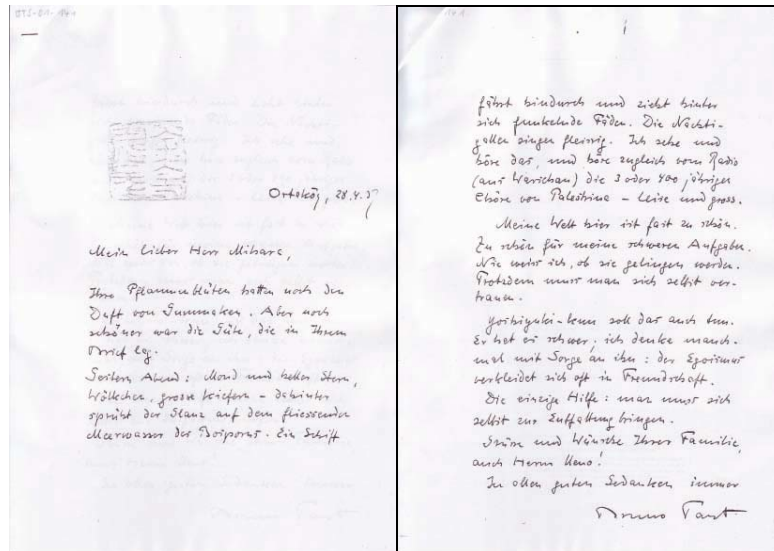 Ortaköj, 28.4.37
Mein lieber Herr Mihara,
Ihre Pflaumenblüten hatten noch den
Duft von Gunmaken. Aber noch
schöner war die Güte, die in Ihrem
Brief lag.
Gestern Abend: Mond und heller Stern,
Wölkchen, grosse Kiefern – dahinter
sprüht der Glanz auf dem fliessenden
Meerwasser des Bosporus. Ein Schiff
fährt hindurch und zieht hinter
sich funkelnde Fäden. Die Nachti-
gallen singen fleissig. Ich sehe und
höre das, und höre zugleich vom Radio
(aus Warschau) die 3 oder 400 jährigen
Chöre von Palestrina – leise und gross.
Meine Welt hier ist fast zu schön.
Zu schön für meine schweren Aufgaben.
Nie weiss ich, ob sie gelingen werden.
Trotzdem muss man sich selbst ver-
trauen.
Yoshiyuki-kun soll das auch tun.
Er hat es schwer; ich denke manch-
mal mit Sorge an ihn: der Egoismus
verkleidet sich oft in Freundschaft.
Die einzige Hilfe: man muss sich
selbst zur Entfaltung bringen.
Grüsse und Wünsche Ihrer Familie,
auch Herrn Ueno!
In allen guten Gedanken immer
Bruno Taut